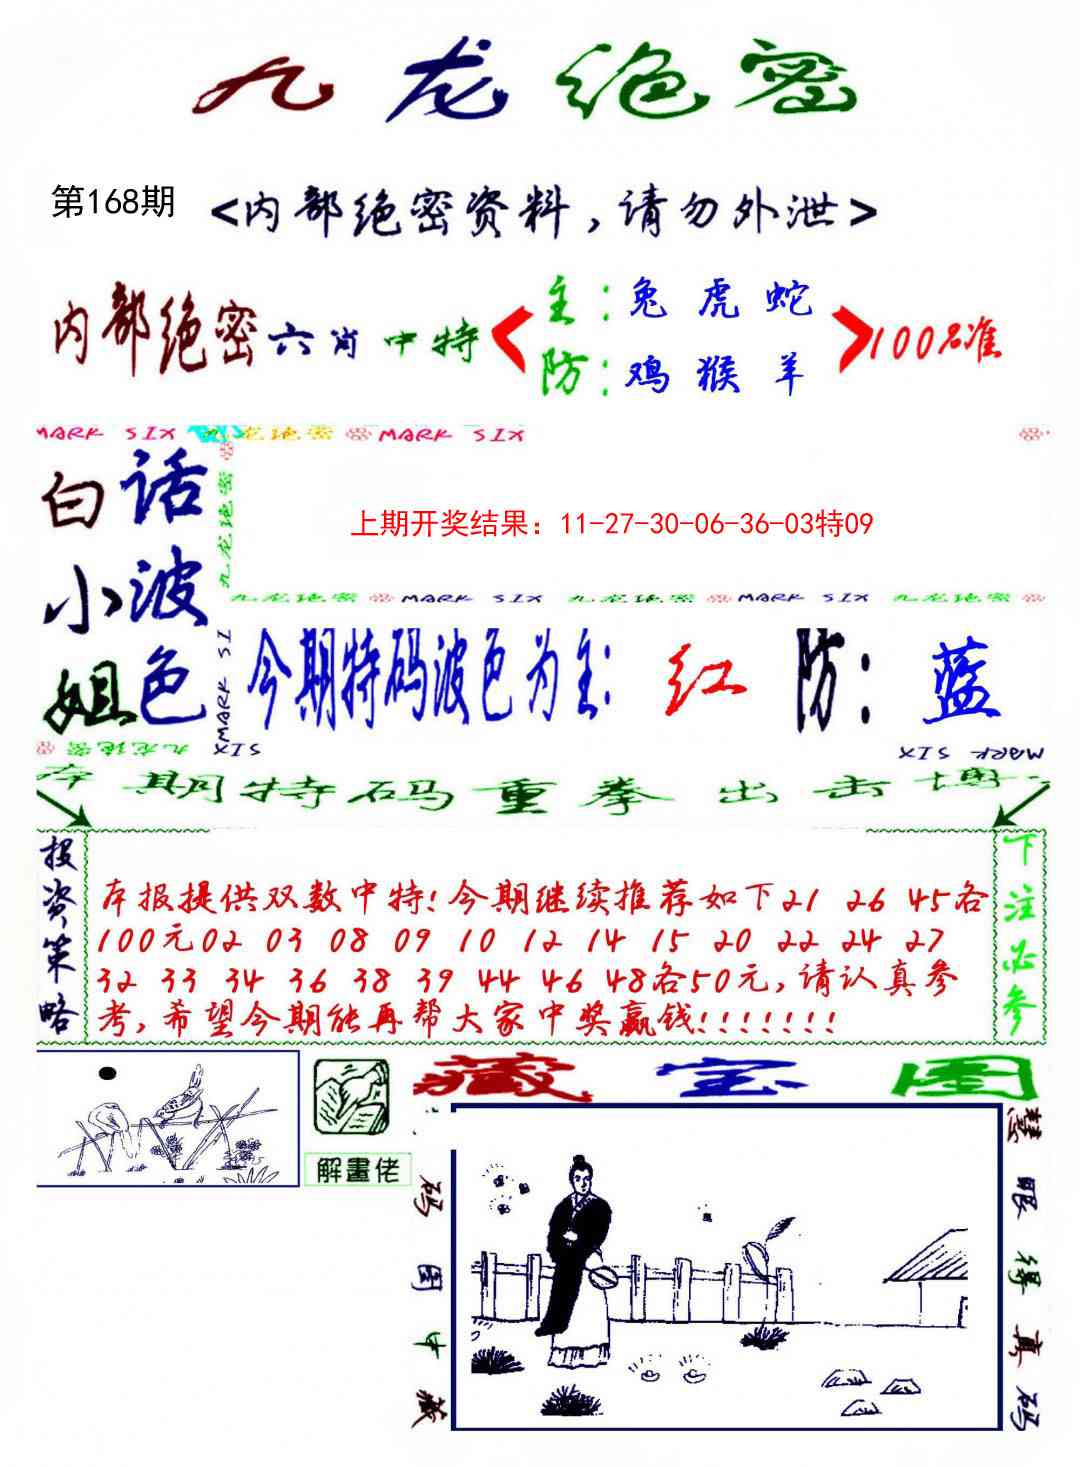 九龙绝密
第168期 <内部绝密资料,请勿外泄>
内部绝密六肖中特
主:兔 虎 蛇
防:鸡 猴 羊
100%准
MARK SIX 九龙绝密 MARK SIX
九龙绝密
白话
小波
姐色
上期开奖结果：11-27-30-06-36-03特09
九龙绝密 MARK SIX 九龙绝密 MARK SIX 九龙绝密
MARK SIX
今期特码波色为主: 红 防: 蓝
九龙绝密 MARK SIX
本期特码重拳出击博
投资策略
本报提供双数中特!今期继续推荐如下21 26 45各
100元02 03 08 09 10 12 14 15 20 22 24 27
32 33 34 36 38 39 44 46 48各50元,请认真参
考,希望今期能再帮大家中奖赢钱!!!!!!!
下注必参
解畫佬
藏宝图
码图中藏
慧眼得真码